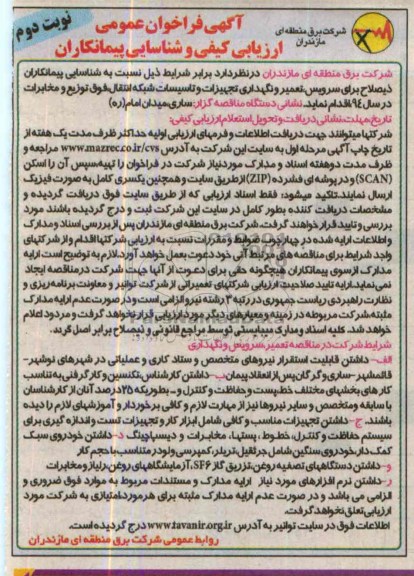 نوبت دوم
شرکت برق منطقه ای
مازندران
آگهی فراخوان عمومی
ارزیابی کیفی و شناسایی پیمانکاران
شرکت برق منطقه ای مازندران در نظر دارد برابر شرایط ذیل نسبت به شناسایی پیمانکاران
ذیصلاح برای سرویس، تعمیر و نگهداری تجهیزات و تاسیسات شبکه انتقال، فوق توزیع و مخابرات
در سال ۹۴ اقدام نماید. نشانی دستگاه مناقصه گزار: ساری، میدان امام (ره)
تاریخ، مهلت، نشانی دریافت و تحویل استعلام ارزیابی کیفی:
شرکتها میتوانند جهت دریافت اطلاعات و فرمهای ارزیابی اولیه حداکثر ظرف مدت یک هفته از
تاریخ چاپ آگهی مرحله اول به سایت این شرکت به آدرس www.mazrec.co.ir/cvs مراجعه و
ظرف مدت دو هفته اسناد و مدارک مورد نیاز شرکت در فراخوان را تهیه، سپس آن را اسکن
(SCAN) و در پوشه ای فشرده (ZIP) از طریق سایت و همچنین یکسری کامل به صورت فیزیکی
ارسال نمایند. تاکید میشود: فقط اسناد ارزیابی که از طریق سایت فوق دریافت گردیده و
مشخصات دریافت کننده بطور کامل در سایت این شرکت ثبت و درج گردیده باشند مورد
بررسی و تایید قرار خواهند گرفت. شرکت برق منطقه ای مازندران پس از بررسی اسناد و مدارک
و اطلاعات ارایه شده در چهارچوب ضوابط و مقررات نسبت به ارزیابی شرکتها اقدام و از شرکتهای
واجد شرایط برای مناقصه های مرتبط آتی خود دعوت بعمل خواهد آورد. لازم به توضیح است ارایه
مدارک از سوی پیمانکاران هیچگونه حقی برای دعوت از آنها جهت شرکت در مناقصه ایجاد
نمی نماید. ارایه تایید صلاحیت ارزیابی شرکتهای تعمیراتی از شرکت توانیر و معاونت برنامه ریزی و
نظارت راهبردی ریاست جمهوری در رتبه ۳ رشته نیرو الزامی است و در صورت عدم ارایه مدارک
مثبته، شرکت مربوطه در زمینه و معیارهای دیگر مورد ارزیابی قرار نخواهد گرفت و مردود اعلام
خواهد شد. کلیه اسناد و مدارک میبایستی توسط مراجع قانونی و ذیصلاح برابر اصل گردد.
شرایط شرکت در مناقصه تعمیر، سرویس و نگهداری
الف- داشتن قابلیت استقرار نیروهای متخصص و ستاد کاری و عملیاتی در شهرهای نوشهر-
قائمشهر - ساری و گرگان پس از انعقاد پیمان ب- داشتن کارشناس، تکنسین و کارگر فنی به تناسب
کار های بخشهای مختلف خط، پست و حفاظت و کنترل و... بطوریکه ۲۵ درصد آنان از کارشناسان
با سابقه و متخصص و سایر نیروها نیز از مهارت لازم و کافی برخوردار و آموزشهای لازم را دیده
باشند. ج- داشتن تجهیزات مناسب و کافی شامل ابزار کار و تجهیزات تست و اندازه گیری برای
سیستم حفاظت و کنترل، خطوط، پستها، مخابرات و دیسپاچینگ د- داشتن خودروی سبک
کمک دار، خودروی سنگین شامل جرثقیل، تریلر، کمپرسی و لودر متناسب با حجم کار
و- داشتن دستگاههای تصفیه روغن، تزریق گاز SF۶، آزمایشگاههای روغن، رلیاژ و مخابرات
ر- داشتن نرم افزارهای مورد نیاز ارایه مدارک و مستندات مربوط به موارد فوق ضروری و
الزامی می باشد و در صورت عدم ارایه مدارک مثبته برای هر مورد، امتیازی به شرکت مورد
ارزیابی تعلق نخواهد گرفت.
اطلاعات فوق در سایت توانیر به آدرس www.tavanir.org.ir درج گردیده است.
روابط عمومی شرکت برق منطقه ای مازندران